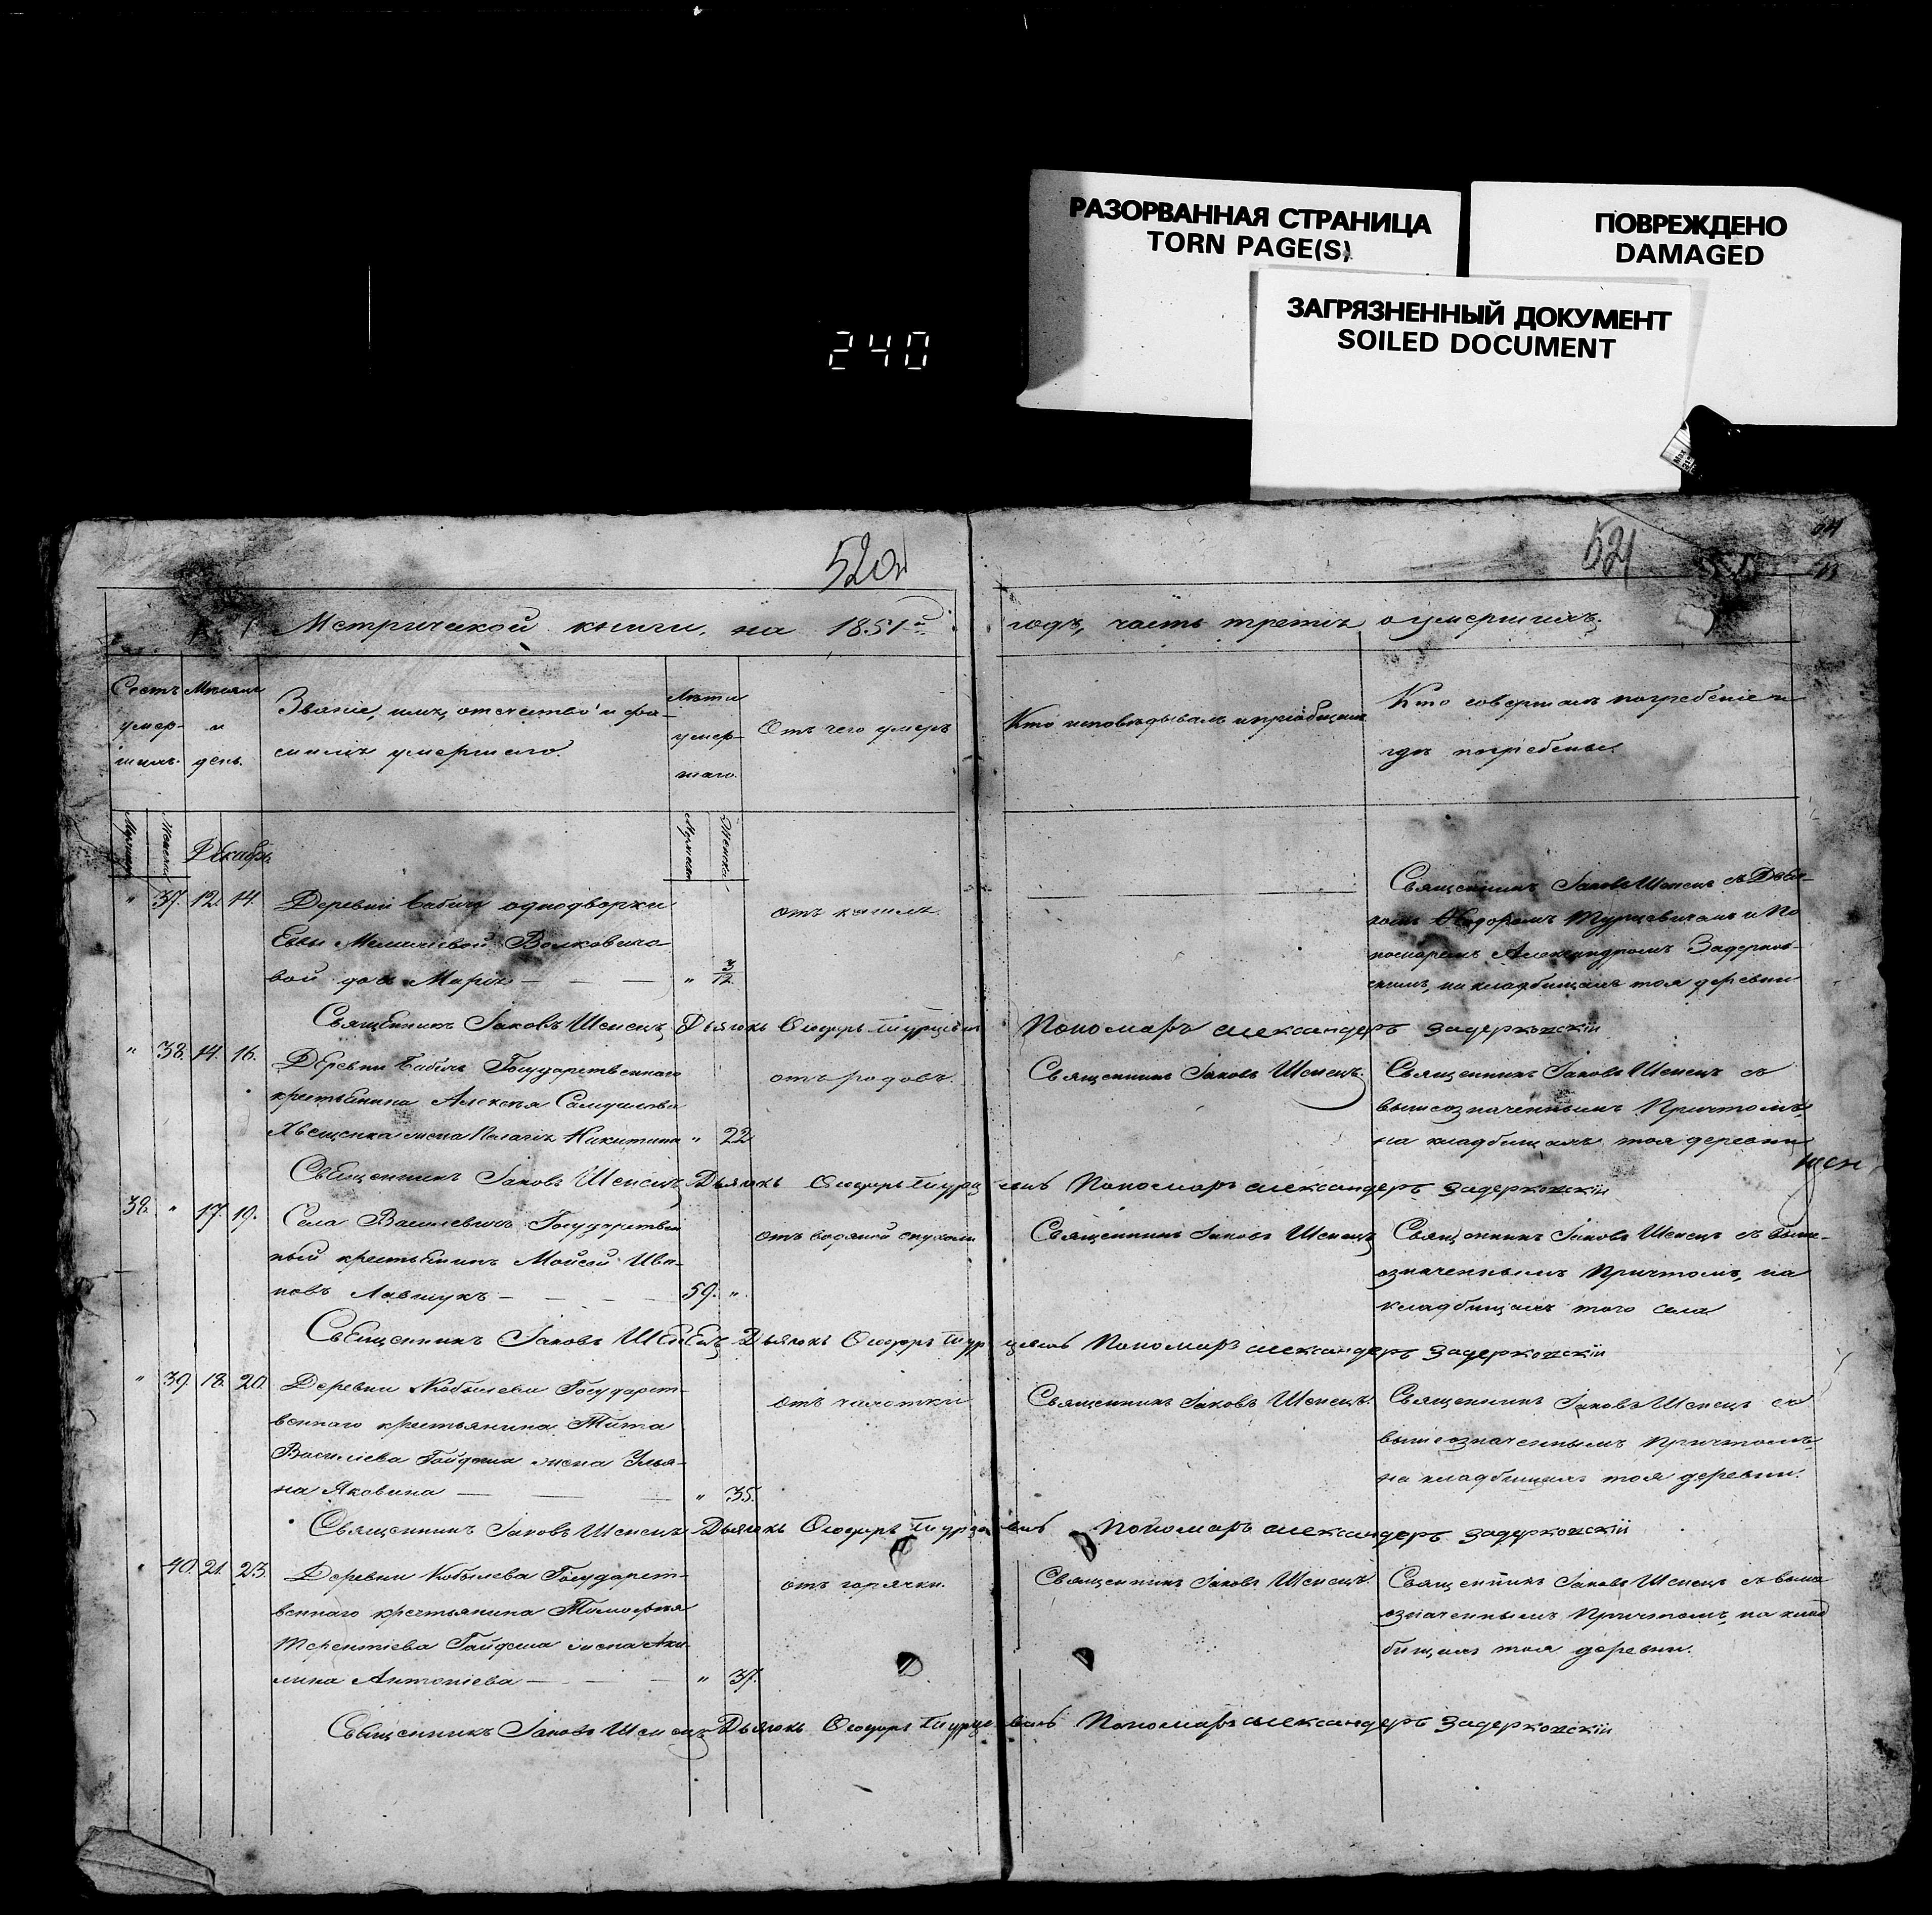 РАЗОРВАННАЯ СТРАНИЦА
TORN PAGE(S)
ПОВРЕЖДЕНО
DAMAGED
ЗАГРЯЗНЕННЫЙ ДОКУМЕНТ
SOILED DOCUMENT
240
520
521
Метрической книги, на 1851й
годъ, часть третія оумершихъ.
Счетъ
умер-
шихъ.
Мѣсяцъ
и
день.
Званіе, имя, отечество и фа-
милія умершаго.
Лѣта
умер-
шаго.
Отъ чего умеръ
Кто исповѣдывалъ и пріобщалъ.
Кто совершалъ погребеніе и
гдѣ погребены.
Декабрь
" 37. 12. 14.
Деревни Бабичъ однодворки
Евы Волковичо
вой дочь Марія
" 3/12
отъ кашля.
Священникъ Іаковъ Шепецъ съ Дьяч-
комъ Ѳеодоромъ Турцевичемъ и По
номаремъ Александромъ Задерков-
скимъ, на кладбищахъ тоя деревни
Священникъ Іаковъ Шепецъ Дьячокъ Ѳеодоръ Турцевичъ Пономаръ Александеръ Задерковскій
" 38. 14. 16.
Деревни Бабичъ Государственнаго
крестьянина Алексѣя Самуилова
жена Пелагія Никитина " 22
отъ родовъ.
Священникъ Іаковъ Шепецъ.
Священникъ Іаковъ Шепецъ съ
вышеозначеннымъ Причтомъ,
на кладбищахъ тоя деревни
Священникъ Іаковъ Шепецъ Дьячокъ Ѳеодоръ Турцевичъ Пономаръ Александеръ Задерковскій
38. " 17. 19.
Села Василевичъ Государствен
ный крестьянинъ Мойсей Ива-
новъ Лавшукъ 59. "
отъ водяной опухоли
Священникъ Іаковъ Шепецъ
Священникъ Іаковъ Шепецъ съ выше-
означеннымъ Причтомъ, на
кладбищахъ того села
Священникъ Іаковъ Шепецъ Дьячокъ Ѳеодоръ Турцевичъ Пономаръ Александеръ Задерковскій
" 39. 18. 20.
Деревни Кобылева Государст-
веннаго крестьянина Тита
Василіева Гайдаша жена Улья-
на Яковина " 35.
отъ чахотки
Священникъ Іаковъ Шепецъ.
Священникъ Іаковъ Шепецъ съ
вышеозначеннымъ Причтомъ,
на кладбищахъ тоя деревни.
Священникъ Іаковъ Шепецъ Дьячокъ Ѳеодоръ Турцевичъ Пономаръ Александеръ Задерковскій
" 40. 21. 23.
Деревни Кобылева Государст-
веннаго крестьянина Тимофея
Терентіева Гайдаша жена Аки
лина Антоніева " 37.
отъ горячки.
Священникъ Іаковъ Шепецъ.
Священникъ Іаковъ Шепецъ съ выше
означеннымъ Причтомъ, на клад
бищахъ тоя деревни.
Священникъ Іаковъ Шепецъ Дьячокъ Ѳеодоръ Турцевичъ Пономаръ Александеръ Задерковскій